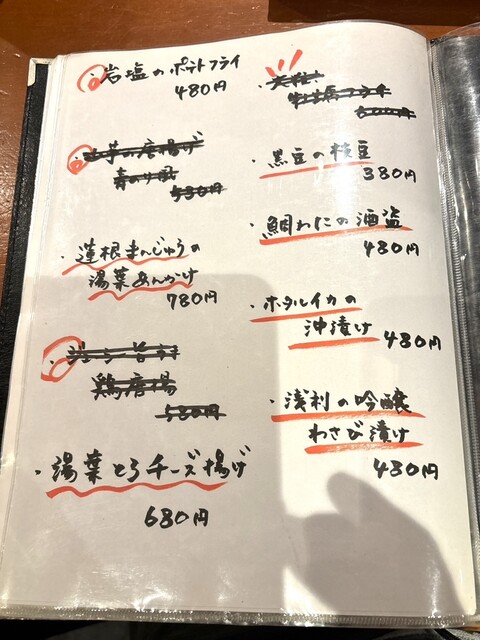 ・岩塩のポテトフライ
480円
の唐揚げ
青のり風
530円
・蓮根まんじゅうの
湯葉あんかけ
780円
鶏唐揚
580円
・湯葉とろチーズ揚げ
680円
・黒豆の枝豆
380円
・鯛わたの酒盗
480円
・ホタルイカの
沖漬け 480円
・浅利の吟醸
わさび漬け
480円